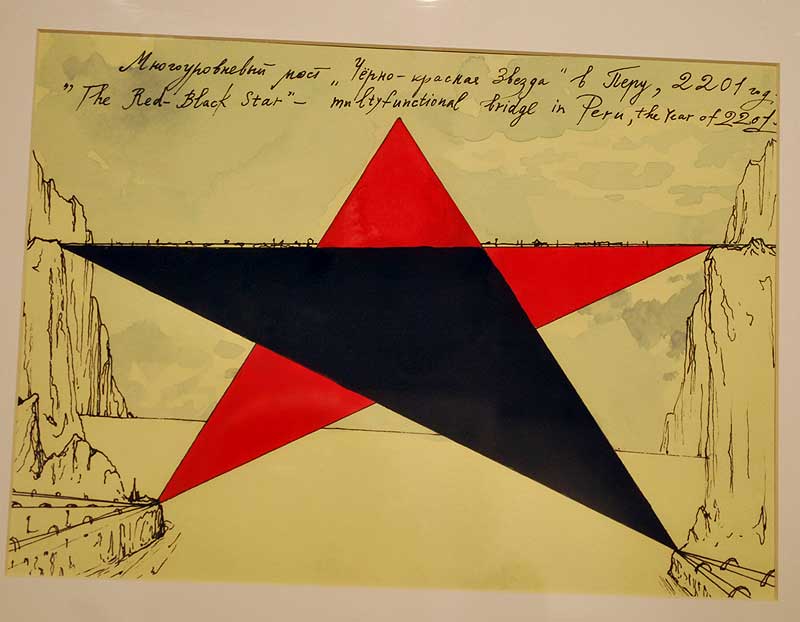 Многоуровневый мост „Чёрно-красная Звезда“ в Перу, 2201 год.
"The Red-Black Star" – multyfunctional bridge in Peru, the Year of 2201.